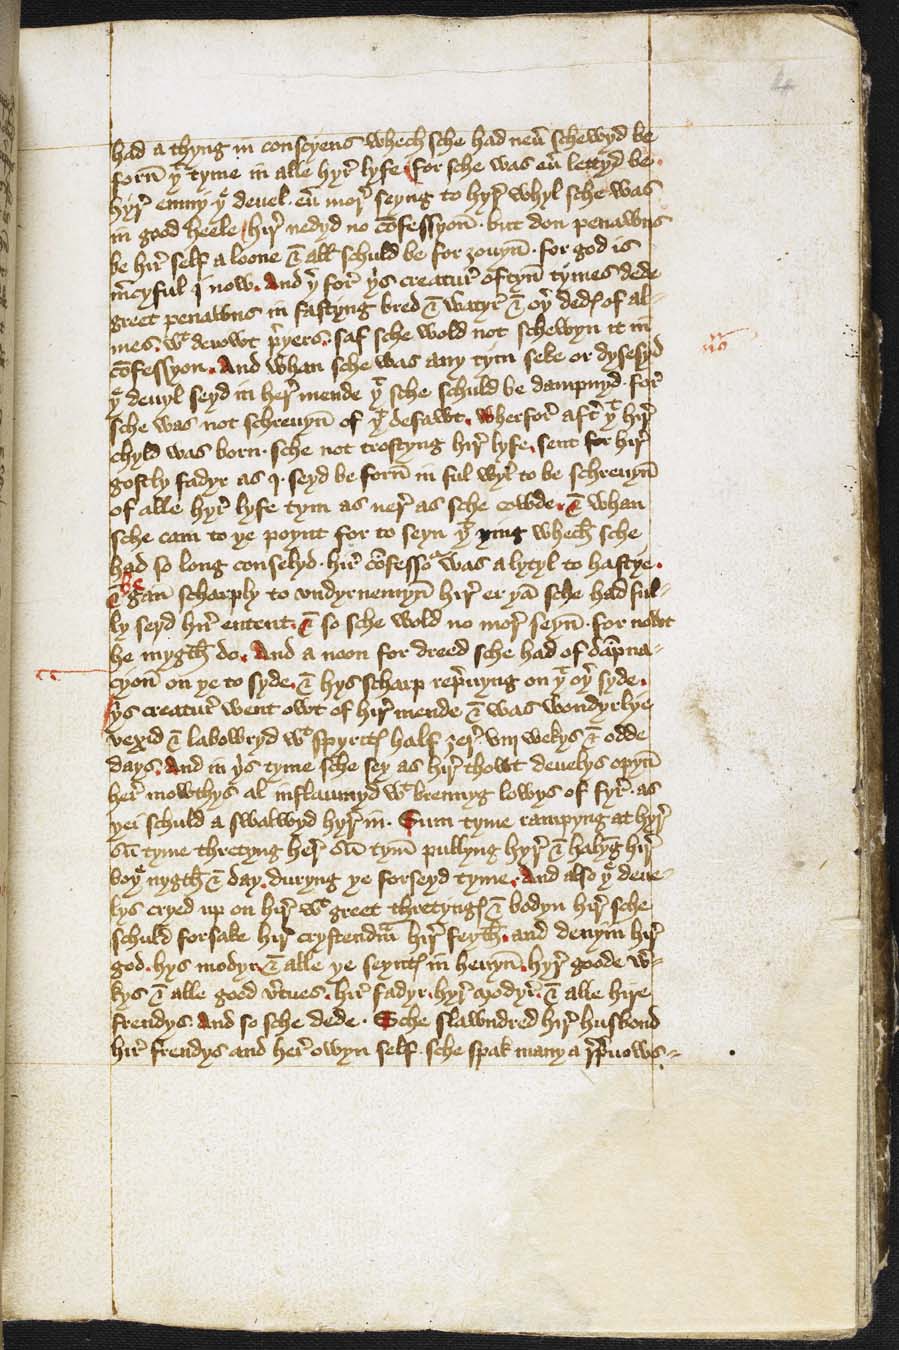 4
had a thyng in conscyens whech sche had neu̅ schewyd be
forn̅ yͭ tyme in alle hyr̉ lyfe / for sche was eu̅ lettyd be
hyr̉ enmy yͤ deuel · eu̅ mor̉ seyng to hyr̉ whyl sche was
in good heele / hir̉ nedyd no co̅fessyon̅ · but don penawns
be hir̉ self a loone & all schuld be for ȝouyn̅ · for god is
m̉cyful j now. And yͬ for̉ yͥs creatur̉ oftyn̅ tymes dede
greet penawns in fastyng bred & watyr̉ & oyͬ dedꝭ of al-
mes. wͭ deuowt p̉yers. saf sche wold not schewyn it in
co̅fessyon. And whan sche was any tym seke or dysesyd
yͤ deuyl seyd in her̉ mende yͭ sche schuld be dampnyd · for̉
sche was not schreuyn̅ of yͭ defawt. wherfor̉ aft̉ yͭ hir̉
chyld was born · sche not trostyng hir̉ lyfe. sent for hir̉
gostly fadyr as j · seyd be forn̅ in ful wyl to be schreuyn̅
of alle hyr̉ lyfe tym as ner̉ as sche cowde. & whan
sche cam to ye poynt for to seyn yͭ ying whech̅ sche
had so long conselyd · hir̉ co̅fessoͬ was a lytyl to hastye.
& be gan̅ scharply to vndyrnemyn̅ hir̉ er ya̅ sche had ful-
ly seyd hir̉ entent. & so sche wold no mor̉ seyn̅ · for nowt
he mygth̅ do. And a noon for dreed sche had of da̅pna-
cyon̅ on ye to syde. & hys scharp rep̉uyng on yͭ oyͬ syde.
yͥs creatur̉ went owt of hir̉ mende & was wondyrlye
vexid & labowryd wͭ spyritꝭ half ȝer̉ · viij wekys & odde
days. And in yͥs tyme sche sey as hir̉ thowt deuelys opyn̅
her̉ mowthys al inflaumyd wͭ brennyg lowys of fyr̉ · as
yei schuld a swalwyd hyr̉ in · Sum tyme rampyng at hyr̉
su̅ tyme thretyng her̉ su̅ tym̅ pullyng hyr̉ & haly̅g hir̉
boyͤ nygth̅ & day. duryng ye forseyd tyme. And also yͤ deue-
lys cryed up on hir̉ wͭ greet thretyngꝭ & bodyn hir̉ sche
schuld forsake hir̉ crystendm̅ hir̉ feyth̅. and denyin hir̉
god. hys modyr. & alle ye seyntꝭ in heuyn̅. hyr̉ goode w̉-
kys & alle good v̉tues. hir̉ fadyr. hyr̉ modyr̉. & alle hire
frendys. And so sche dede · Sche slawndred hir̉ husbond
hir̉ frendys and her̉ owyn self · sche spak many a rep̉uows-